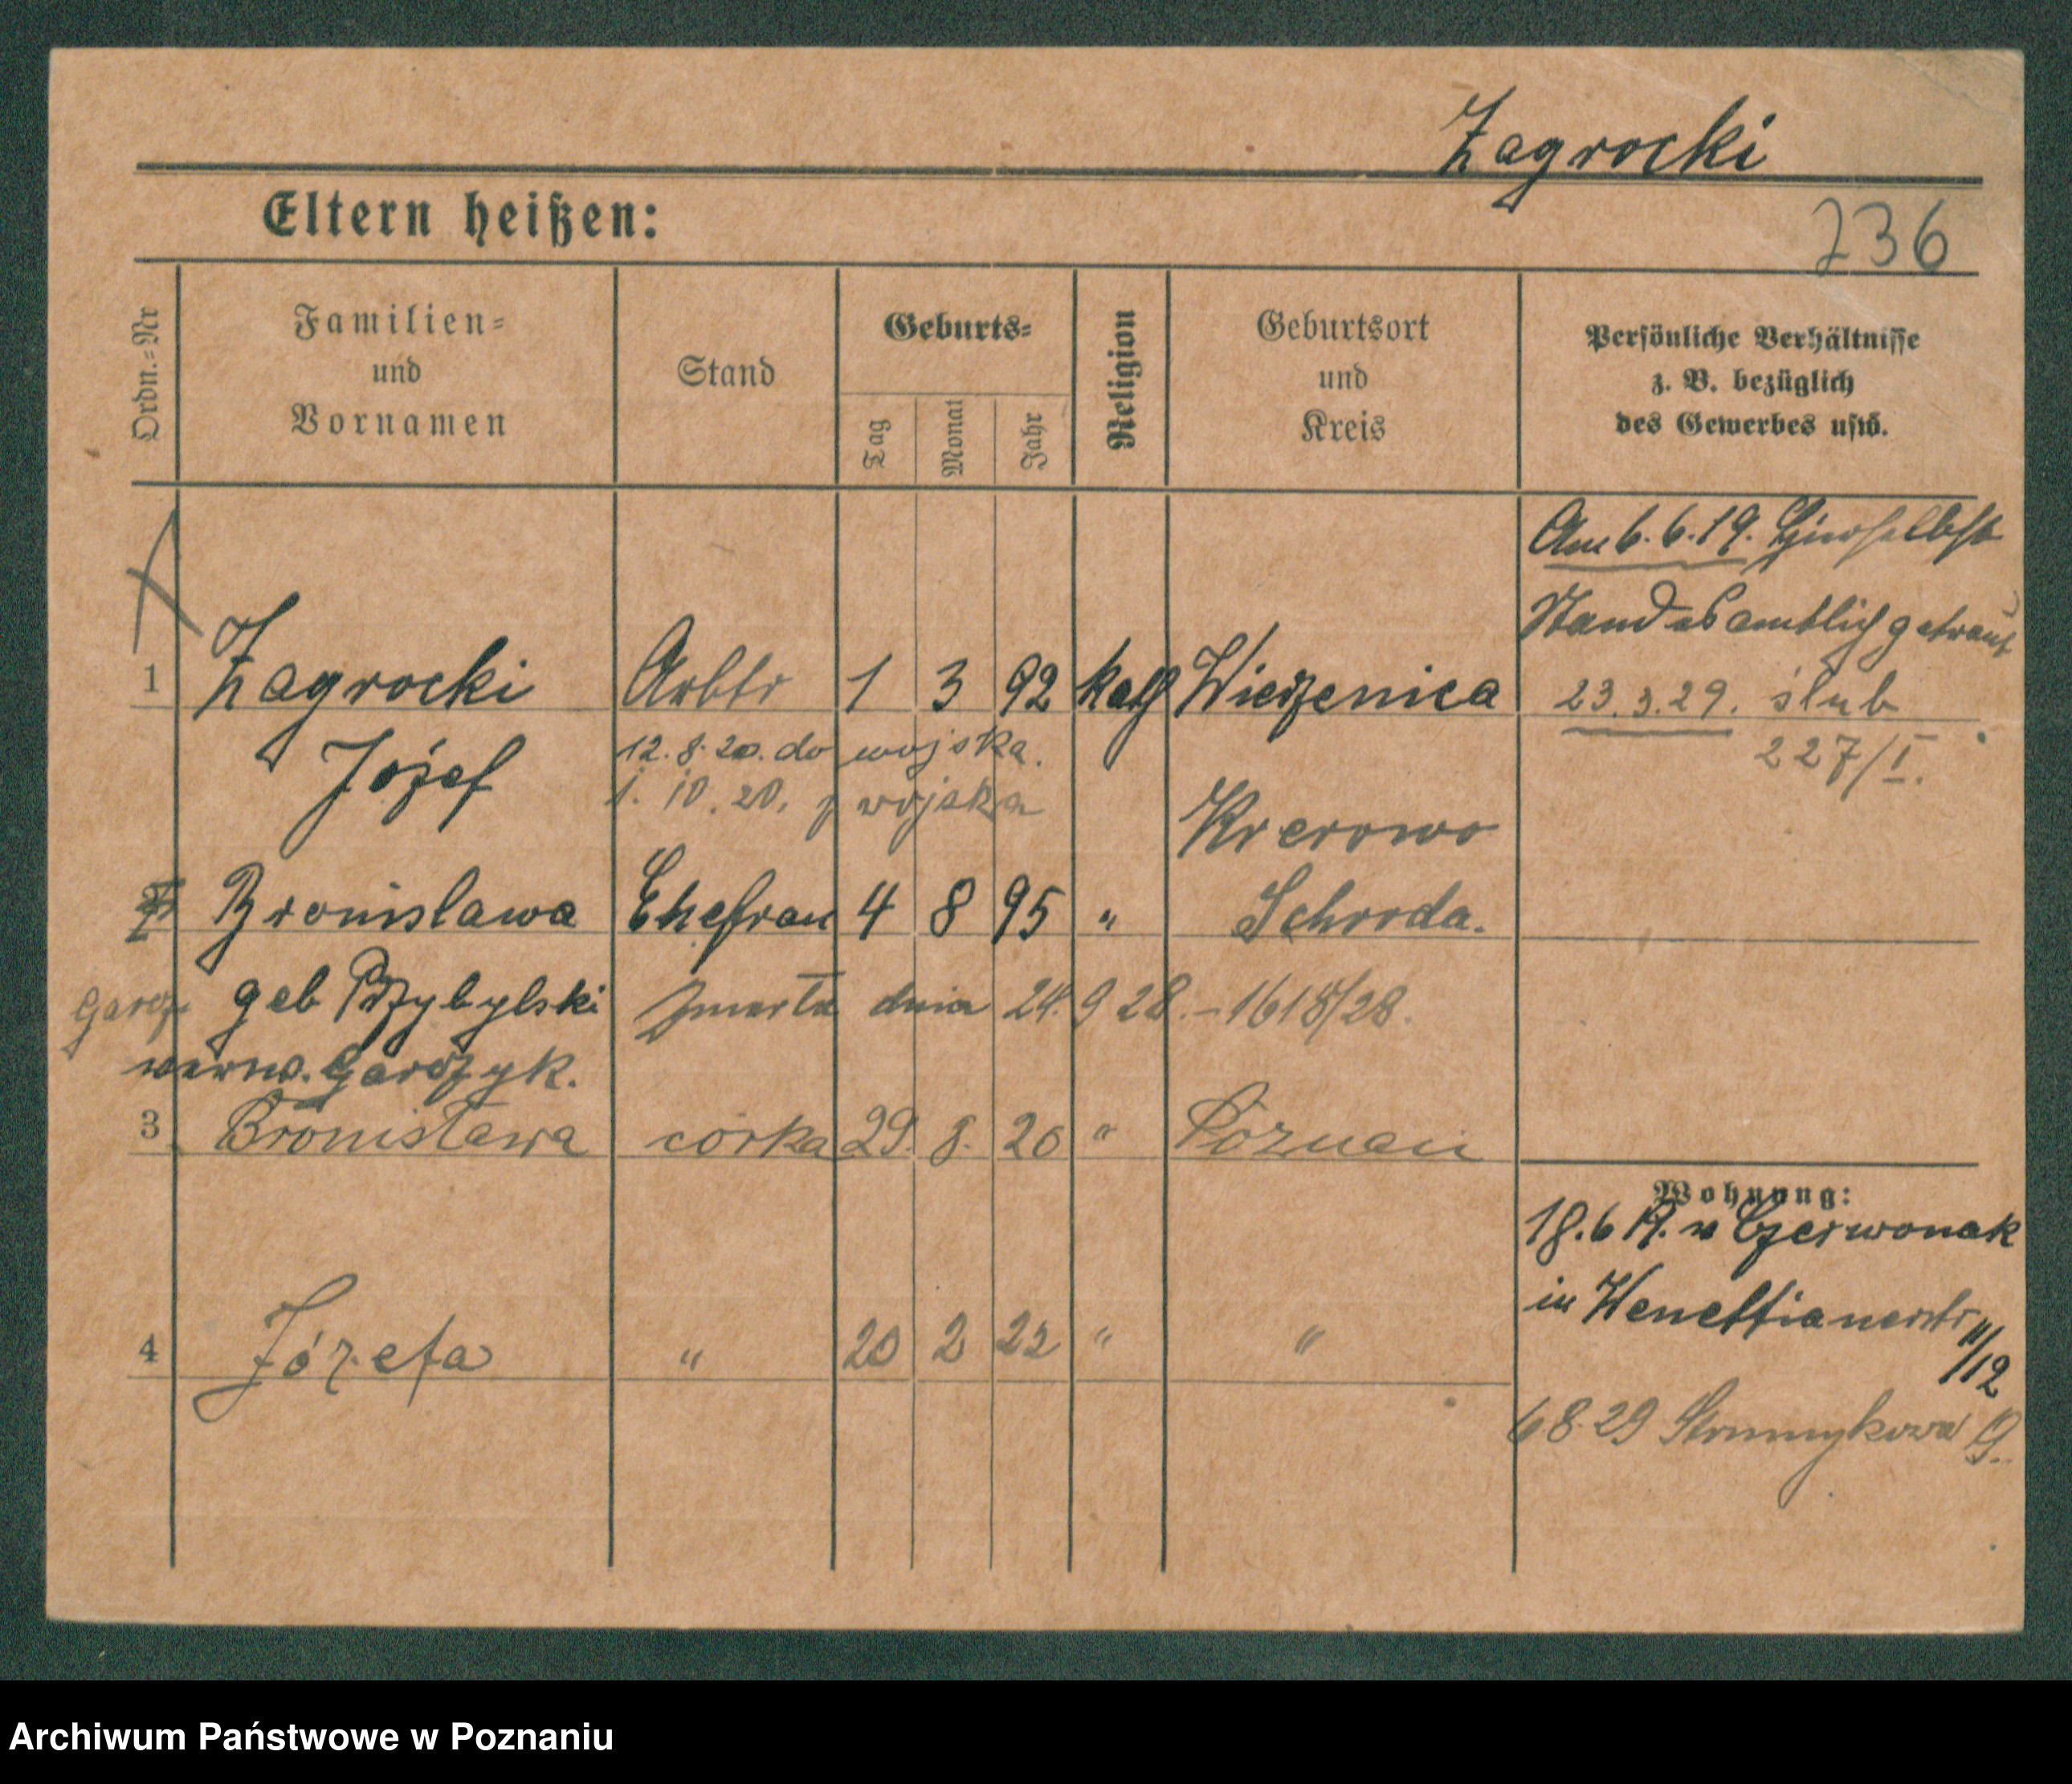 Zagrocki
Eltern heißen:
236
Ordn.-Nr
Familien-
und
Vornamen
Stand
Geburts-
Tag
Monat
Jahr
Religion
Geburtsort
und
Kreis
Persönliche Verhältnisse
z. B. bezüglich
des Gewerbes usw.
Am 6.6.19. hierselbst
Standesamtlich getraut
23.3.29. ślub
227/I.
1 Zagrocki Arbtr 1 3 92 kath Wierzenica
Józef
12.8.20. do wojska.
1.10.20. z wojska
Krerowo
Bronislawa Ehefrau 4 8 95 " Schroda.
geb Przybylski zmarła dnia 24.9 28. – 1618/28.
Garcz
werw. Garczyk.
3 Bronisława córka 29. 8. 20 " Poznań
4 Józefa " 20 2 22 " "
Wohnung:
18.6 19. v Czerwonak
in Wenettianerstr
11/12
6 8.29 Strumykowa 19.
Archiwum Państwowe w Poznaniu